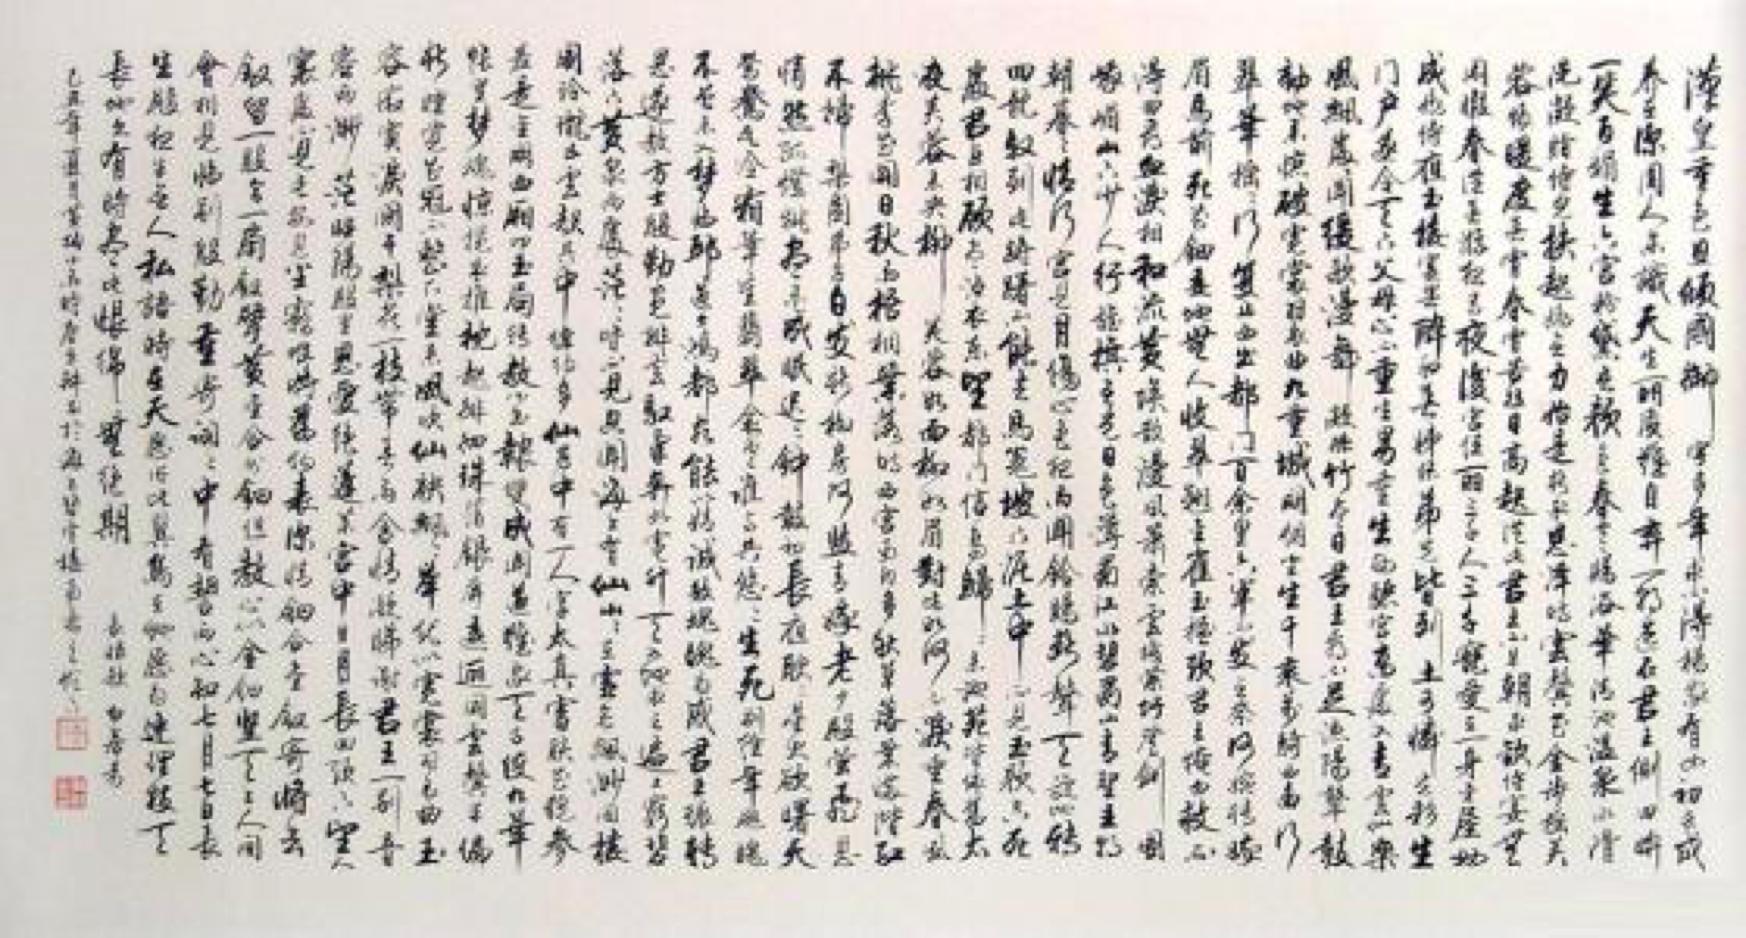 漢皇重色思傾國御宇多年求不得楊家有女初長成
养在深闺人未識天生麗質難自弃一朝選在君王側回眸
一笑百媚生六宮粉黛無顏色春寒賜浴華清池温泉水滑
洗凝脂侍兒扶起嬌無力始是新承恩澤時雲鬢花顏金步摇芙
蓉帳暖度春宵春宵苦短日高起從此君王不早朝承歡侍宴無
闲暇春從春遊夜專夜後宮佳麗三千人三千寵愛在一身金屋妝
成嬌侍夜玉樓宴罷醉和春姊妹弟兄皆列土可憐光彩生
门户遂令天下父母心不重生男重生女驪宮高處入青雲仙樂
風飄處處闻緩歌漫舞凝丝竹尽日君王看不足漁陽鼙鼓
動地來驚破霓裳羽衣曲九重城闕烟塵生千乘萬騎西南行
翠華摇摇行復止西出都门百余里六軍不發無奈何宛轉蛾
眉馬前死花鈿委地無人收翠翹金雀玉搔頭君王掩面救不
得回看血淚相和流黄埃散漫風蕭索雲棧縈紆登劍閣
峨嵋山下少人行旌旗無光日色薄蜀江水碧蜀山青聖主朝
朝暮暮情行宮見月傷心色夜雨聞鈴腸斷聲天旋地转
回龍馭到此躊躇不能去馬嵬坡下泥土中不見玉顏空死
處君臣相顧尽沾衣東望都门信馬歸歸來池苑皆依舊太
液芙蓉未央柳芙蓉如面柳如眉對此如何不淚垂春風
桃李花開日秋雨梧桐葉落時西宮南内多秋草落葉滿階红
不掃梨園弟子白发新椒房阿監青娥老夕殿螢飛思
悄然孤燈挑尽未成眠遲遲钟鼓初長夜耿耿星河欲曙天
鴛鴦瓦冷霜華重翡翠衾寒誰與共悠悠生死别經年魂魄
不曾來入梦臨邛道士鴻都客能以精誠致魂魄為感君王輾轉
思遂教方士殷勤覓排雲馭氣奔如電升天入地求之遍上窮碧
落下黄泉兩處茫茫皆不見忽聞海上有仙山山在虚無縹緲间樓
閣玲瓏五雲起其中綽約多仙子中有一人字太真雪膚花貌參
差是金闕西廂叩玉扃转教小玉報雙成闻道漢家天子使九華
帳里梦魂惊攬衣推枕起徘徊珠箔銀屏迤逦開雲鬢半偏
新睡覺花冠不整下堂來風吹仙袂飄飄舉猶似霓裳羽衣舞玉
容寂寞淚闌干梨花一枝春带雨含情凝睇謝君王一别音
容兩渺茫昭陽殿里恩愛绝蓬萊宮中日月長回頭下望人
寰處不見長安見塵霧唯將舊物表深情鈿合金釵寄將去
釵留一股合一扇釵擘黄金合分鈿但教心似金鈿堅天上人间
會相見臨别殷勤重寄詞詞中有誓兩心知七月七日長
生殿夜半無人私語時在天愿作比翼鳥在地愿為連理枝天
長地久有時尽此恨綿綿無绝期 長恨歌 白居易
己丑年夏月